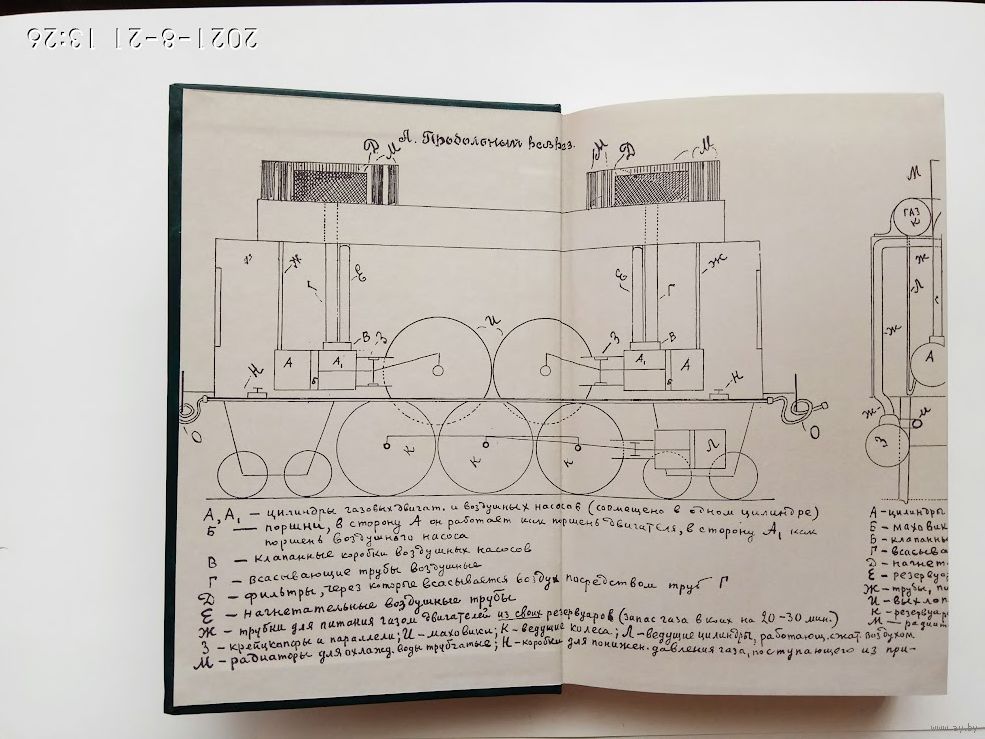 2021-8-21 13:26
Д М А. Продольный разрез. М Д М
М
ГАЗ
К
Ж Г Е Е Г Ж
Ж
Л
И
В З З В
А Б А₁ А₁ Б А
А
Н Н
О О
Ж
З
К К К Л
А, А₁ — цилиндры газовых двигат. и воздушных насосов (совмещено в одном цилиндре)
Б — поршни, в сторону А он работает как поршень двигателя, в сторону А₁ как
поршень воздушного насоса
В — клапанные коробки воздушных насосов
Г — всасывающие трубы воздушные
Д — фильтры, через которые всасывается воздух посредством труб Г
Е — нагнетательные воздушные трубы
Ж — трубки для питания газом двигателей из своих резервуаров (запас газа в коих на 20-30 мин.)
З — крейцкопфы и параллели; И — маховики; К — ведущие колеса; Л — ведущие цилиндры, работающ. сжат. воздухом
М — радиаторы для охлажд. воды трубчатые; Н — коробки для понижен. давления газа, поступающего из при-
А — цилиндры
Б — маховик
Б — клапанны
Г — всасыва
Д — нагнет
Е — резервуа
Ж — трубы, пи
И — выхлоп
К — резервуар
М — радиат
www.ay.by